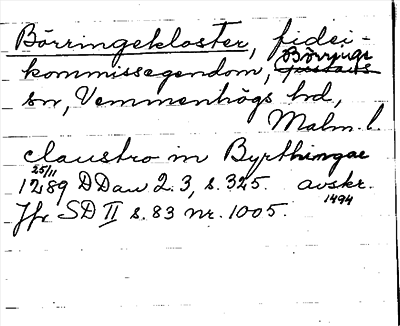 Börringekloster, fidei-
kommissegendom, Börringe
sn, Vemmenhögs hd,
Malm. l.
claustro in Byrthingae
25/11
1289 DDan 2.3, s. 325. avskr.
1494
Jfr SD II s. 83 nr. 1005.